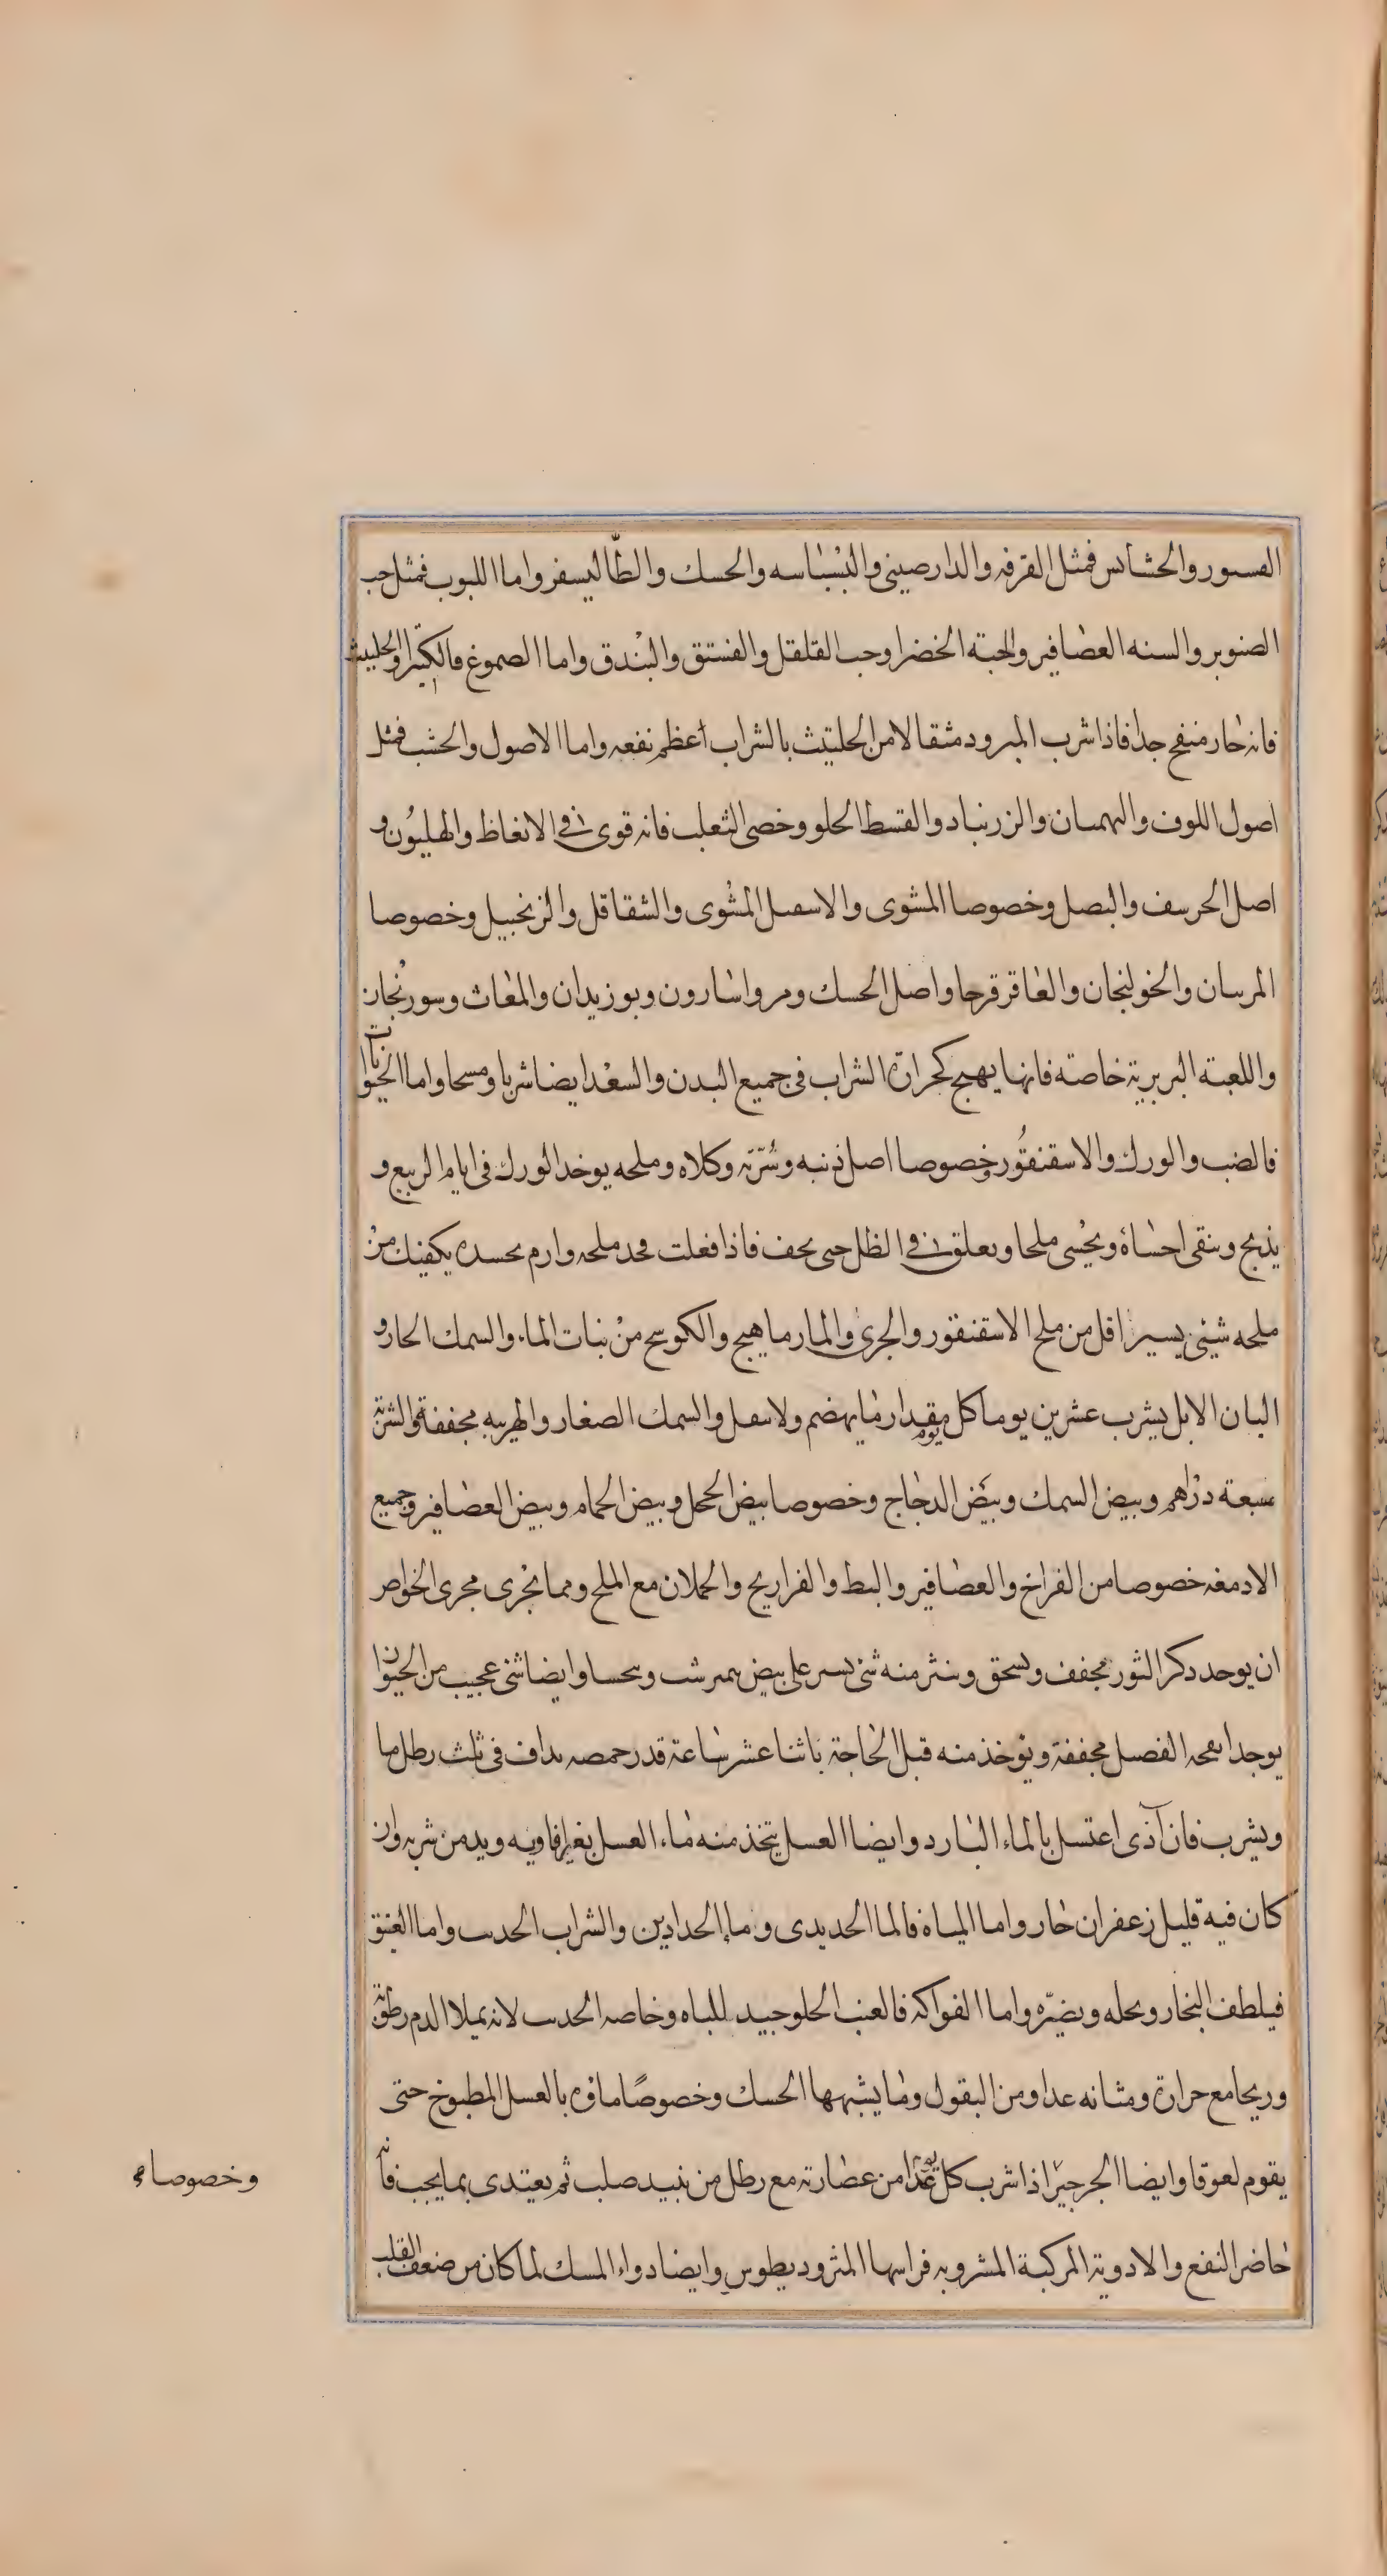 القسور والحشائس فمثل القرفه والدارصيني والبسباسه والحسك والطاليسفر واما اللبوب فمثل حب
الصنوبر والسنه العصافير والحبة الخضرا وحب القلقل والفستق والبندق واما الصموغ فالكثيرا والحلتيث
فانه حار منفح جدا فاذا شرب المبرود مثقالا من الحلتيث بالشراب اعظم نفعه واما الاصول والحشب فمثل
اصول اللوف والبهمنان والزرنباد والقسط الحلو وخصى الثعلب فانه قوى في الانعاظ والهليون و
اصل الحرسف والبصل وخصوصا المشوى والاسقيل المشوى والشقاقل والزنجبيل وخصوصا
المرسان والخولنجان والعاقرقرحا واصل الحسك ومر واسارون وبوزيدان والمغاث وسورنجان
واللعبة البربرية خاصة فانها يهيج كحرارة الشراب في جميع البدن والسعد ايضا شربا ومسحا واما الحيوانات
فالضب والورك والاسقنقور وخصوصا اصل ذنبه وسرته وكلاه وملحه يوخد الورك فى ايام الربيع و
يذبح وينقى احشاه ويحشى ملحا ويعلق في الظل حى يحف فاذا فعلت فحد ملحه وارم بحسده يكفيك من
ملحه شيئ يسير اقل من ملح الاسقنقور والجرى والمارماهيج والكوسج من بنات الماء والسمك الحار و
البان الابل يشرب عشرين يوما كل يوم مقدار ما يهضم ولا ينقل والسمك الصغار والهربيه مجففة والشربة
سبعة دراهم وبيض السمك وبيض الدجاج وخصوصا بيض الحجل وبيض الحمام وبيض العصافير وجميع
الادمغه خصوصا من الفراخ والعصافير والبط والفراريح والحملان مع الملح ومما يجرى مجرى الخواص
ان يوحد دكر الثور مجفف ويسحق وينثر منه شئ يسير على بيض نيمبرشت ويحسا وايضا شئ عجيب من الحيوان
يوجد انفحه الفصيل مجففة ويوخذ منه قبل الحاجة باثنا عشر ساعة قدر حمصه يداف فى ثلث رطل ما
ويشرب فان آذى اعتسل بالماء البارد وايضا العسل يتخذ منه ماء العسل بغير افاويه ويدمن شربه وان
كان فيه قليل زعفران حار واما المياه فالما الحديدى وما الحدادين والشراب الحدث واما العتيق
فيلطف البخار ويحله ويضره واما الفواكه فالعنب الحلو جيد للباه وخاصه الحدث لانه يملا الدم رطوبة
وريحا مع حرارة ومثانه غدا ومن البقول وما يشبهها الحسك وخصوصا ماؤه بالعسل المطبوخ حتى
يقوم لعوقا وايضا الجرجير اذا شرب كل يوم من عصارته مع رطل من نبيد صلب ثم يغتدى بما يجب فانه
حاضر النفع والادوية المركبة المشروبه فراسها المثروديطوس وايضا دواء المسك لما كان من ضعف القلب
وخصوصا